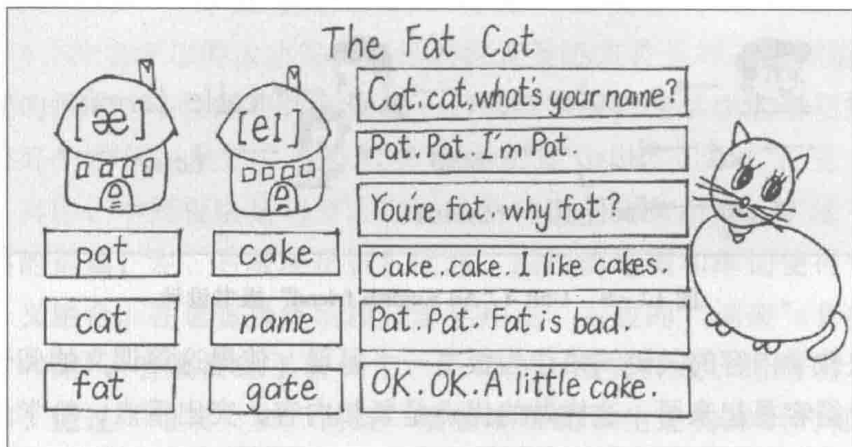 The Fat Cat
[æ]
[eɪ]
pat
cake
cat
name
fat
gate
Cat.cat,what's your name?
Pat. Pat. I'm Pat.
Youre fat. why fat?
Cake.cake. I like cakes.
Pat. Pat. Fat is bad.
OK. OK. A little cake.